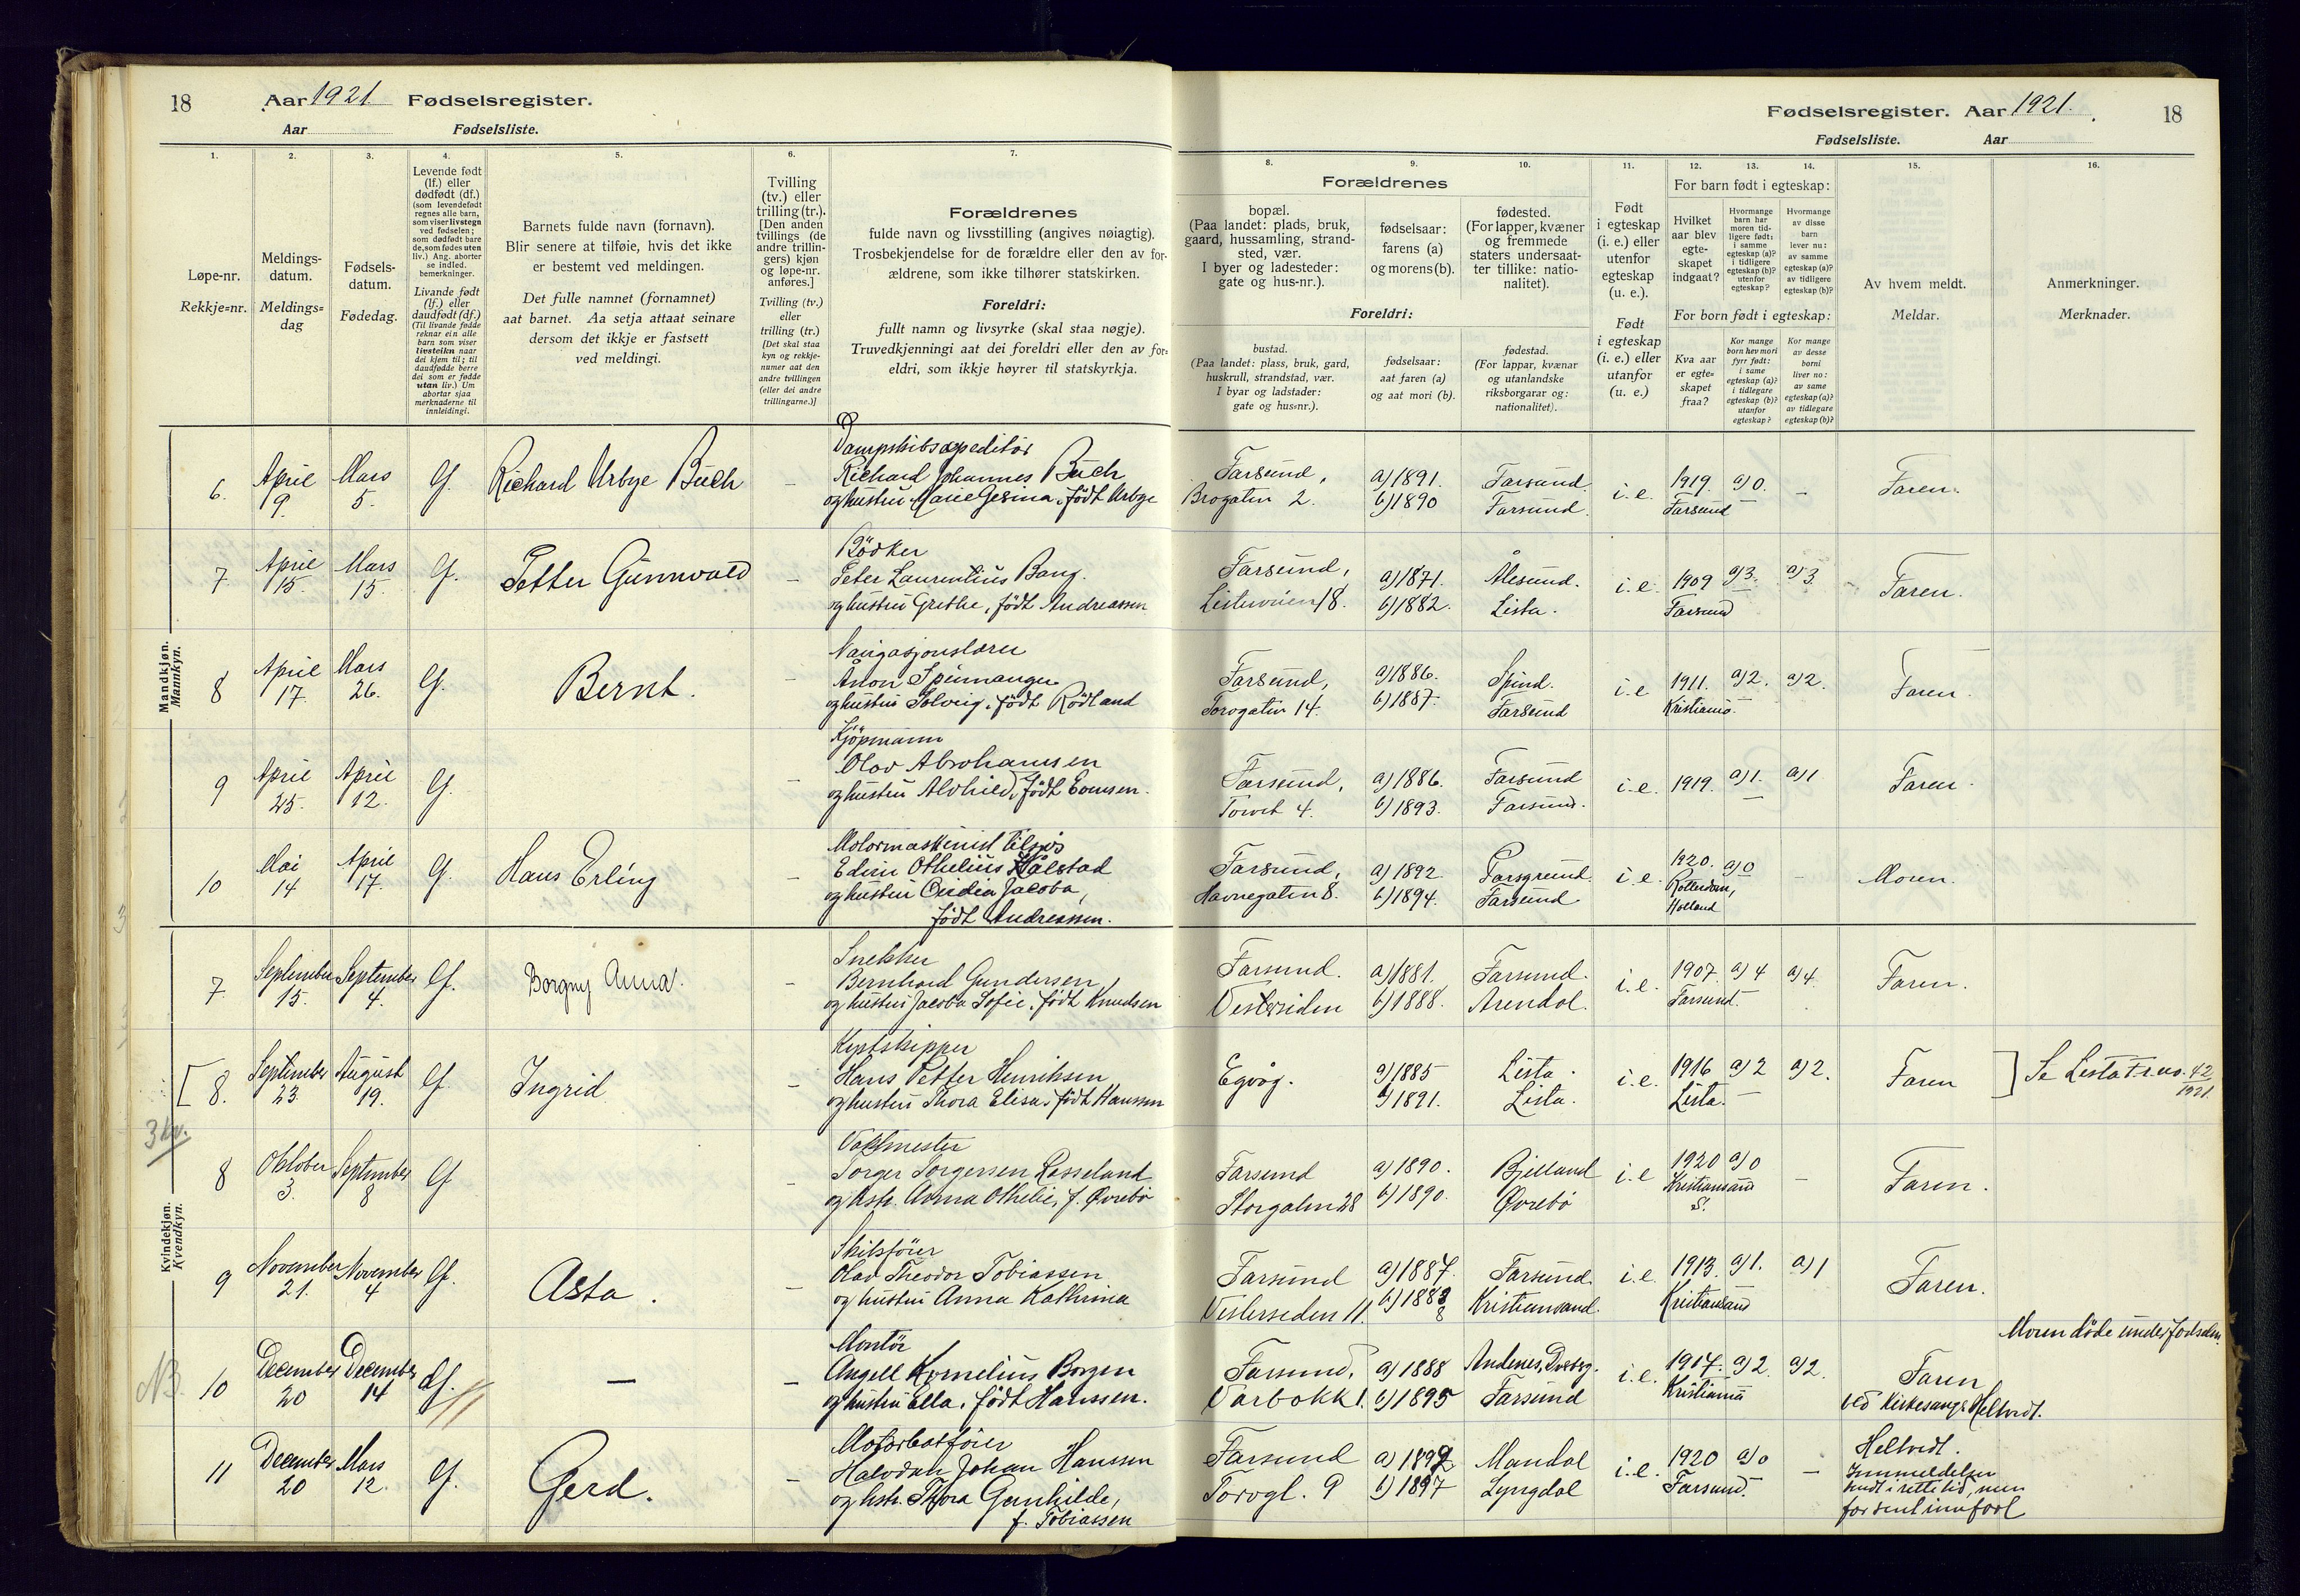 18
Aar 1921 Fødselsregister.
Aar Fødselsliste.
1.
2.
3.
4.
5.
6.
7.
Løpe-nr.
Rekkje=nr.
Meldings-
datum.
Meldings=
dag
Fødsels-
datum.
Fødedag.
Levende født
(lf.) eller
dødfødt (df.)
(som levendefødt
regnes alle barn,
som viser livstegn
ved fødselen;
som dødfødt bare
de, som fødes uten
liv.) Ang. aborter
se indled.
bemerkninger.
Livande født
(lf.) eller
daudfødt (df.)
(Til livande fødde
reknar ein alle
barn som viser
livsteikn naar
dei kjem til; til
daudfødde berre
dei som er fødde
utan liv.) Um
abortar sjaa
merknaderne til
innleidingi.
Barnets fulde navn (fornavn).
Blir senere at tilføie, hvis det ikke
er bestemt ved meldingen.
Det fulle namnet (fornamnet)
aat barnet. Aa setja attaat seinare
dersom det ikkje er fastsett
ved meldingi.
Tvilling
(tv.) eller
trilling (tr.).
[Den anden
tvillings (de
andre trillin-
gers) kjøn
og løpe-nr.
anføres.]
Tvilling (tv.)
eller
trilling (tr.)
[Det skal staa
kyn og rekkje-
numer aat den
andre tvillingen
(eller dei andre
trillingarne.)]
Forældrenes
fulde navn og livsstilling (angives nøiagtig).
Trosbekjendelse for de forældre eller den av for-
ældrene, som ikke tilhører statskirken.
Foreldri:
fullt namn og livsyrke (skal staa nøgje).
Truvedkjenningi aat dei foreldri eller den av for=
eldri, som ikkje høyrer til statskyrkja.
Mandkjøn.
Mannkyn.
6. April 9. Mars 5. lf. Richard Urbye Buch –
Dampskibsexpeditør
Richard Johannes Buch
og hustru Marie Gesina, født Urbye
7. April 15. Mars 15. lf. Petter Gunnvald –
Bödker
Peter Laurentius Bang.
og hustru Grethe, født Andreassen
8 April 17. Mars 26. lf. Bernt. –
Navigasjonslærer
Anon Spinnanger
og hustru Solveig, født Rödland
9 April 25. April 12. lf. –
Kjöpmann
Olav Abrahamsen
og hustru Alvhild, født
10 Mai 14 April 17. lf. Hans Erling –
Motormaskinist tilsjøs
Edvin Othelius Hålstad
og hustru Jacoba,
født Andreassen.
Kvindekjøn.
Kvendkyn.
7. September 15. September 4. lf. Borgny Anna. –
Snekker
Bernhard Gundersen
og hustru Jacoba Sofie, født Knudsen
[ 8. September 23. August 19. lf. Ingrid –
Kystskipper
Hans Petter Henriksen
og hustru Thora Elise, født Hanssen
3 kv.
8 Oktober 3. September 8 lf. –
Vaktmester
Torger Torgersen Lesseland
og hstr. Anna Othelie, f. Øvrebö
9 November 21. November 4 lf. Asta. –
Skibsfører
Olav Theodor Tobiassen
og hustru Anna Kathrina
NB. 10 December 20 December 14 df. — –
Montör
Angell Kornelius Borgen
og hustru Ella, født Hanssen.
11 December 20 Mars 12. lf. Gerd. –
Motorbaatfører
Halvdan Johan Hanssen
og hstr. Thora Gunhilde,
f. Tobiassen
Fødselsregister. Aar 1921.
18
Fødselsliste. Aar
8.
9.
10.
11.
12.
13.
14.
15.
16.
Forældrenes
bopæl.
(Paa landet: plads, bruk,
gaard, hussamling, strand-
sted, vær.
I byer og ladesteder:
gate og hus-nr.).
fødselsaar:
farens (a)
og morens (b).
fødested.
(For lapper, kvæner
og fremmede
staters undersaat-
ter tillike: natio-
nalitet).
Foreldri:
bustad.
(Paa landet: plass, bruk, gard,
huskrull, strandstad, vær.
I byar og ladstader:
gate og hus=nr.).
fødselsaar:
aat faren (a)
og aat mori (b).
fødestad.
(For lappar, kvænar
og utanlandske
riksborgarar og:
nationalitet).
Født
i egteskap
(i. e.) eller
utenfor
egteskap
(u. e.).
Født
i egteskap
(i. e.) eller
utanfor
(u. e.)
For barn født i egteskap:
Hvilket
aar blev
egte-
skapet
indgaat?
Hvormange
barn har
moren tid-
ligere født:
i samme
egteskap (a)?
i tidligere
egteskap (b)?
utenfor
egteskap?
Hvormange
av disse
barn
lever nu:
av samme
egteskap (a)?
av tidligere
egteskap (b)?
For born født i egteskap:
Kva aar
er egte=
skapet
fraa?
Kor mange
born hev mori
fyrr født:
i same
egteskap (a)?
i tidlegare
egteskap (b)?
utanfor
egteskap?
Kor mange
av desse
borni
liver no:
av same
egteskap (a)?
av tidlegare
egteskap (b)?
Av hvem meldt.
Meldar.
Anmerkninger.
Merknader.
Farsund, a) 1891. Farsund. i.e. 1919. a) 0. – Faren.
Brogaten 2. b) 1890 Farsund. Farsund
Farsund, a) 1871. Ålesund. i.e. 1909 a) 3. a) 3 Faren.
Listerveien 18. b) 1882. Lista. Farsund
Farsund, a) 1886. Spind. i.e 1911. a) 2. a) 2. Faren.
Torvgaten 14. b) 1887. Farsund Kristiania.
Farsund, a) 1886. Farsund i.e. 1919. a) 1. a) 1 Faren.
Torvet 4. b) 1893. Farsund.
Farsund, a) 1892. Porsgrund. i.e. 1920. a) 0 – Moren.
Havnegaten 8. b) 1894. Farsund Rotterdam,
Holland
Farsund. a) 1881. Farsund. i.e. 1907. a) 4 a) 4. Faren.
Vestersiden b) 1888. Arendal. Farsund.
Egvåg. a) 1885 Lista. i.e. 1916 a) 2 a) 2. Faren ] Se Lista F.r. no. 42
b) 1891. Lista. Lista. 1921.
Farsund a) 1890. Bjelland i.e 1920 a) 0 – Faren.
Storgaten 28 b) 1890. Øvrebö Kristiansand
S.
Farsund a) 1887. Farsund. i.e. 1913. a) 1. a) 1 Faren.
Vestersiden 11. b) 1888 Kristiansand. Kristiansand
Moren döde under fødselen.
Farsund, a) 1888 Andenes, i.e. 1917. a) 2. a) 2. Faren
Varbakk 1. b) 1895 Farsund Kristiania ved Kirkesanger Heltvedt.
Farsund a) 1899 Mandal i.e. 1920 a) 0 – Heltvedt.
Torvgt. 9 b) 1897 Lyngdal Farsund. Innmeldelsen
sendt i rette tid, men
for sent innført